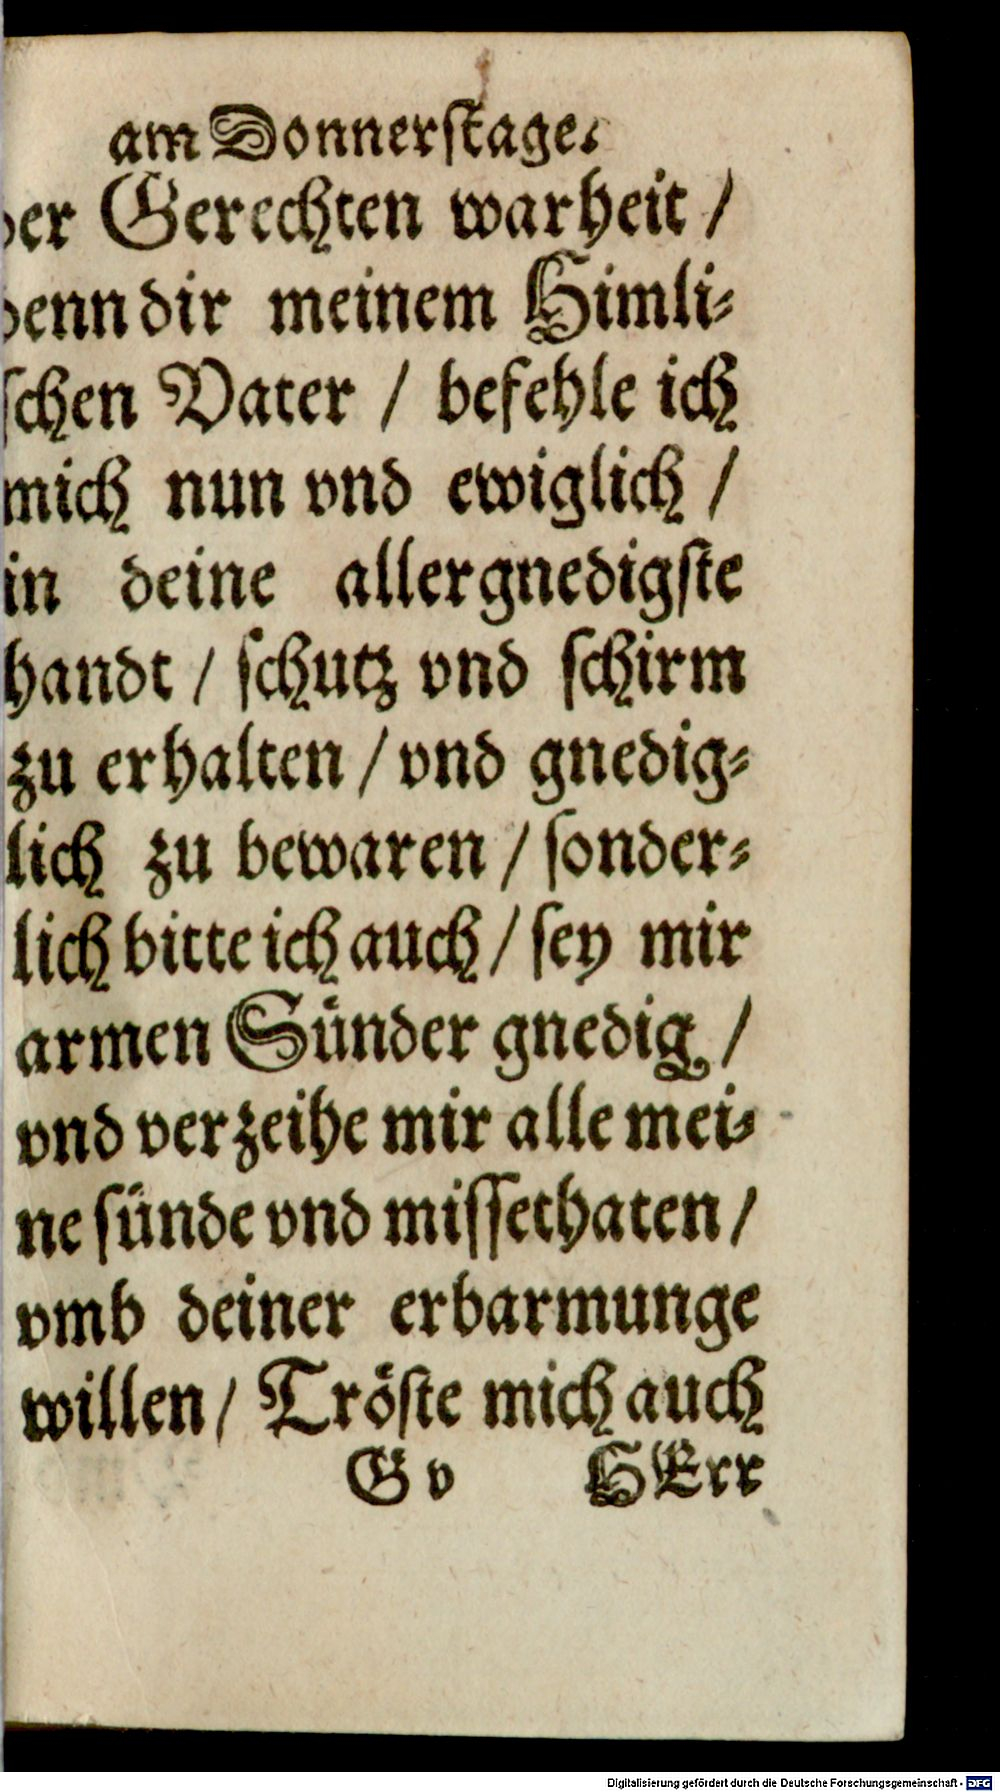 am Donnerſtage.
der Gerechten warheit /
denn dir meinem Himli⸗
ſchen Vater / befehle ich
mich nun vnd ewiglich /
in deine allergnedigſte
handt / ſchutz vnd ſchirm
zu erhalten / vnd gnedig⸗
lich zu bewaren / ſonder⸗
lich bitte ich auch / ſey mir
armen Sünder gnedig /
vnd verzeihe mir alle mei⸗
ne ſünde vnd miſſethaten /
vmb deiner erbarmunge
willen / Tröſte mich auch
G v HErr
Digitalisierung gefördert durch die Deutsche Forschungsgemeinschaft - DFG